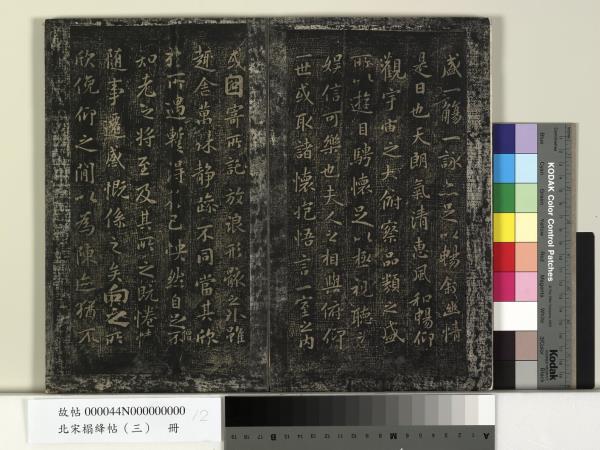 盛一觴一詠亦足以暢叙幽情
是日也天朗氣清惠風和暢仰
觀宇宙之大俯察品類之盛
所以遊目騁懷足以極視聽之
娛信可樂也夫人之相與俯仰
一世或取諸懷抱悟言一室之內
或因寄所託放浪形骸之外雖
趣舍萬殊静躁不同當其欣
於所遇暫得於己怏然自足不
知老之將至及其所之既惓情
随事遷感慨係之矣向之所
欣俛仰之閒以為陳迹猶不
故帖 000044N000000000 12
北宋榻絳帖（三） 冊
KODAK Color Control Patches
Blue
Cyan
Green
Yellow
Red
Magenta
White
3/Color
Black
Kodak
A
M
B